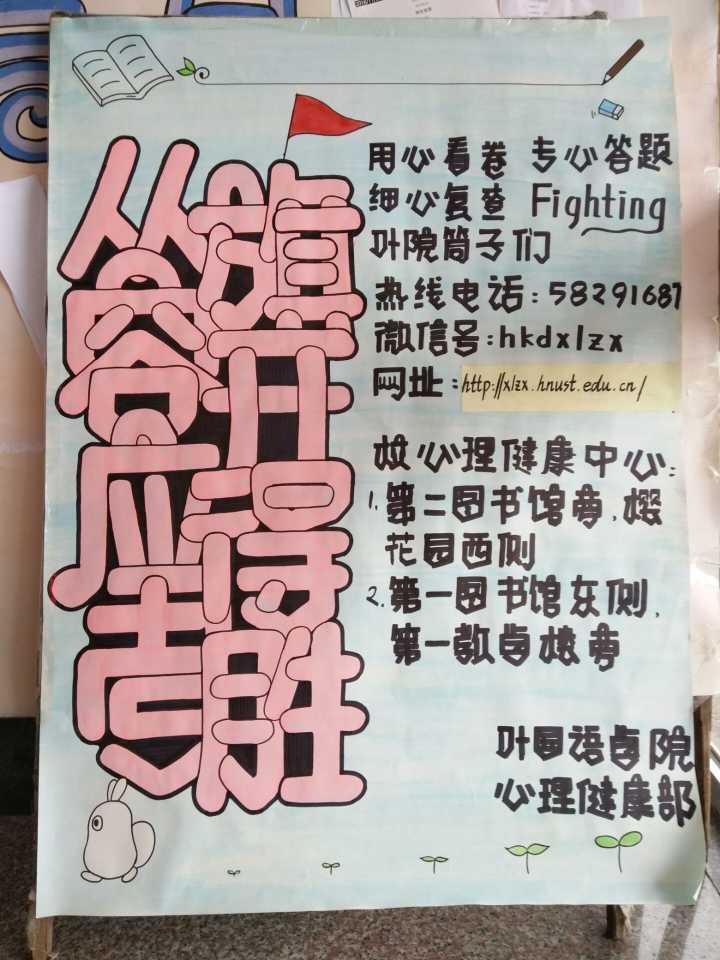 从容应考
旗开得胜
用心看卷 专心答题
细心复查 Fighting
外院筒子们
热线电话:58291687
微信号:hkdxlzx
网址:http://xlzx.hnust.edu.cn/
校心理健康中心:
1.第二图书馆旁.樱
花园西侧
2.第一图书馆东侧.
第一教学楼旁
外国语学院
心理健康部